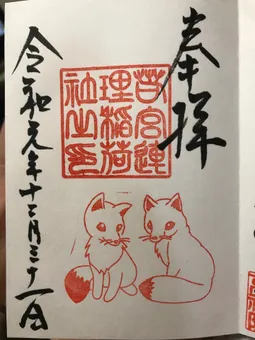 奉拝
若宮連
理稲荷
社之印
令和元年十二月三十一日